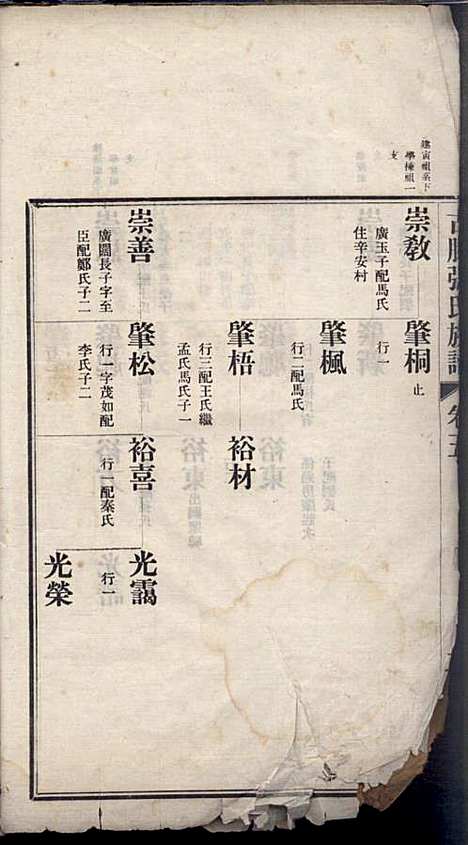 建寅祖系下
學棟祖一
支
張氏族譜
崇教
廣玉子配馬氏
住辛安村
肇桐
止
行一
肇楓
行二配馬氏
肇梧
行三配王氏繼
孟氏馬氏子一
裕材
崇善
廣闊長子字至
臣配鄭氏子二
肇松
行一字茂如配
李氏子二
裕喜
行一配秦氏
光靄
行一
光榮